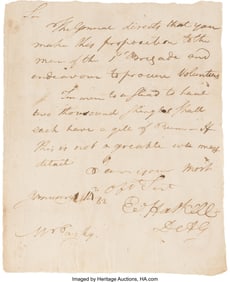 Sir
The General directs that you
make this proposition to the
men of the 1st Brigade and
endeavour to procure Volunteers
Twelve men to a load to haul
two thousand shingles shall
each have a gill of rum — If
This is not agreeable we may
detail
I am
Sir most
obt Sert
Ed Haskell
DAG
Imaged by Heritage Auctions, HA.com